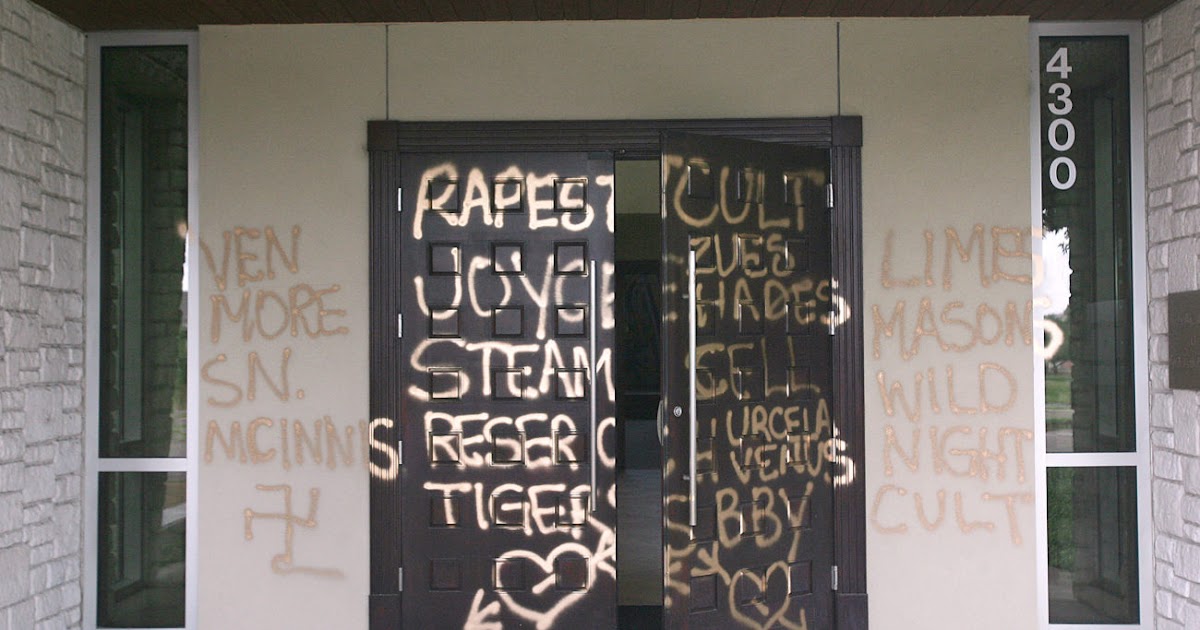 VEN
MORE
SN.
MCINNIS
RAPEST CULT
JOYCE ZUES
HADES
STEAM CELL
RESER
URCELA
VENUS
TIGER
BBY
LIMES
MASONS
WILD
NIGHT
CULT
4300